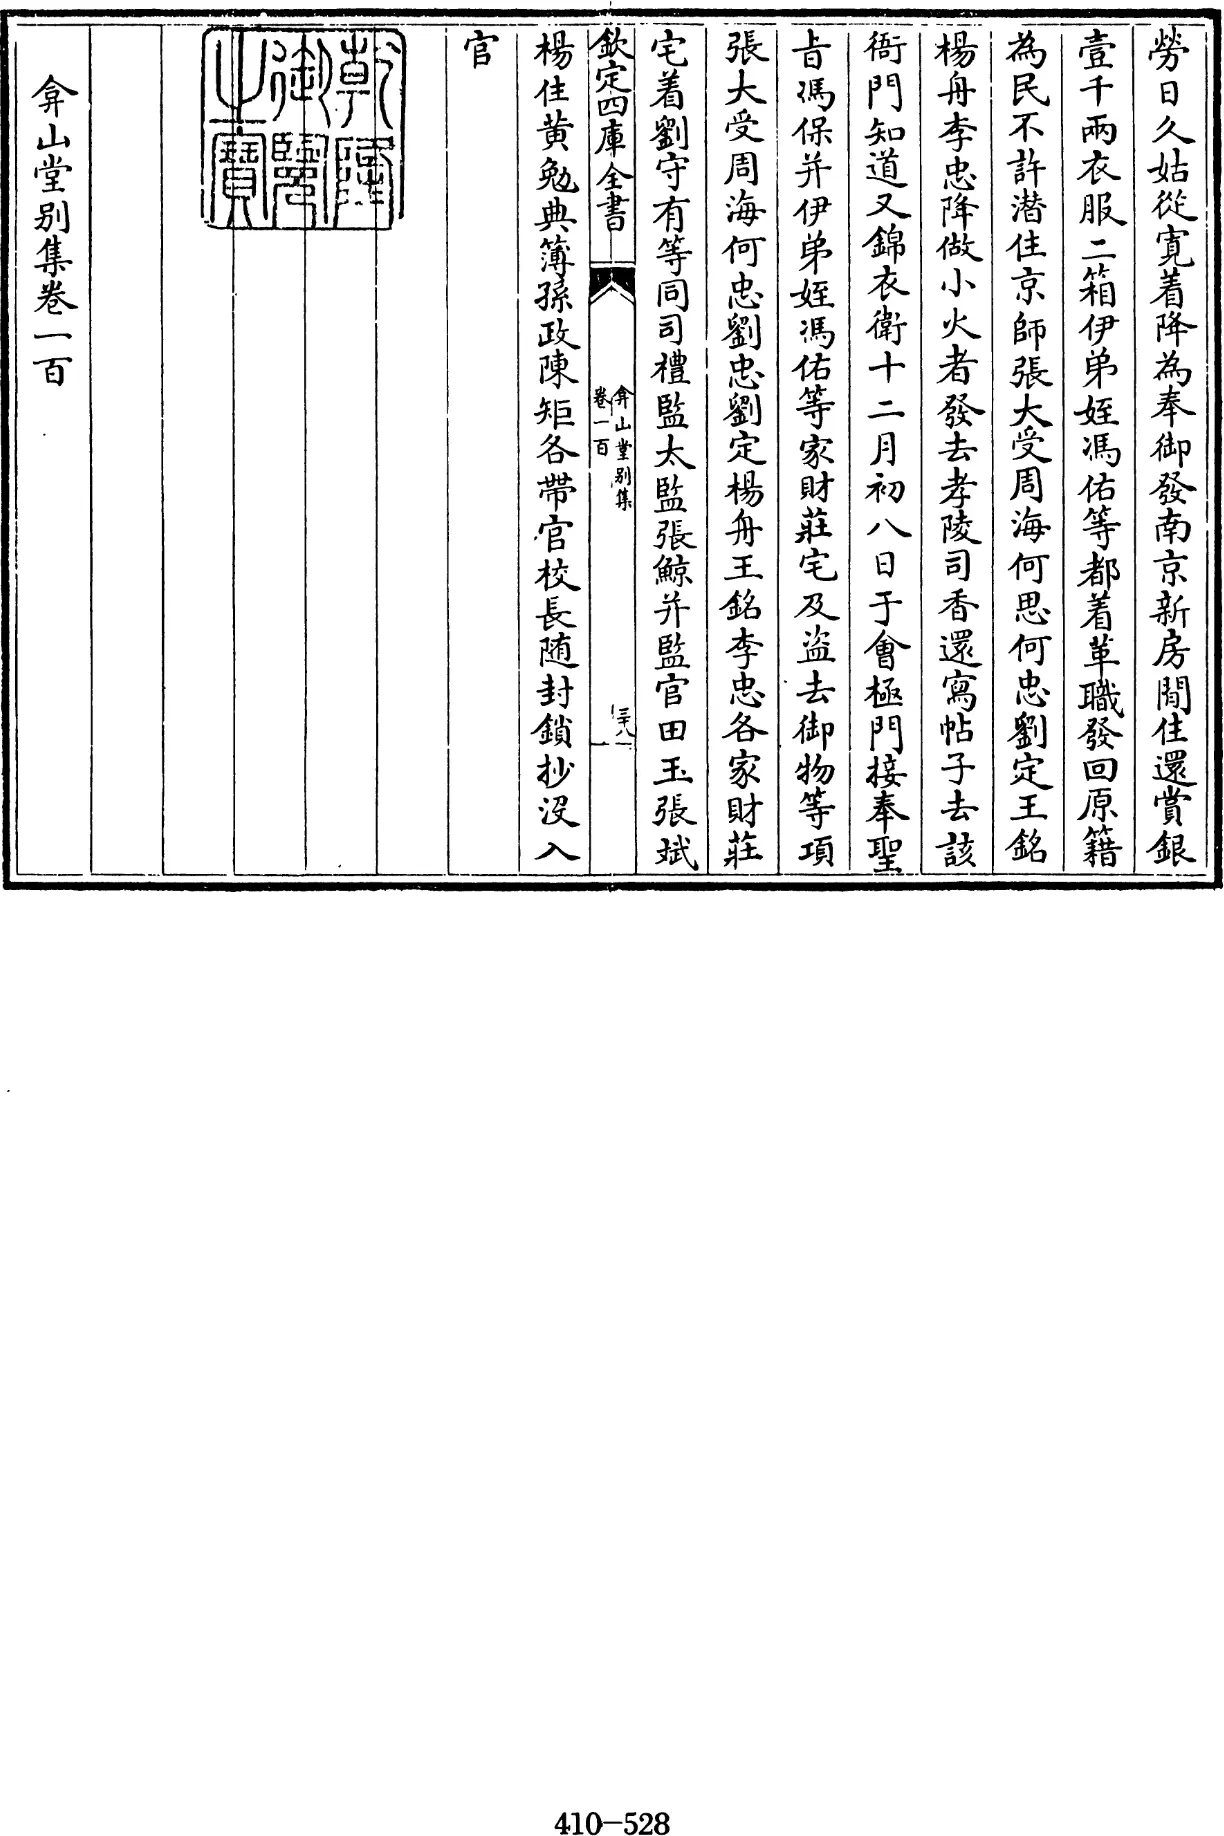 勞日久姑從寬着降為奉御發南京新房閒住還賞銀
壹千兩衣服二箱伊弟姪馮佑等都着革職發回原籍
為民不許潜住京師張大受周海何思何忠劉定王銘
楊舟李忠降做小火者發去孝陵司香還寫帖子去該
衙門知道又錦衣衛十二月初八日于會極門接奉聖
㫖馮保并伊弟姪馮佑等家財莊宅及盜去御物等項
張大受周海何忠劉忠劉定楊舟王銘李忠各家財莊
宅着劉守有等同司禮監太監張鯨并監官田玉張斌
欽定四庫全書
弇山堂别集
卷一百
三十八
楊住黄勉典簿孫政陳矩各帶官校長随封鎖抄沒入
官
乾隆御覽之寶
弇山堂别集卷一百
410-528